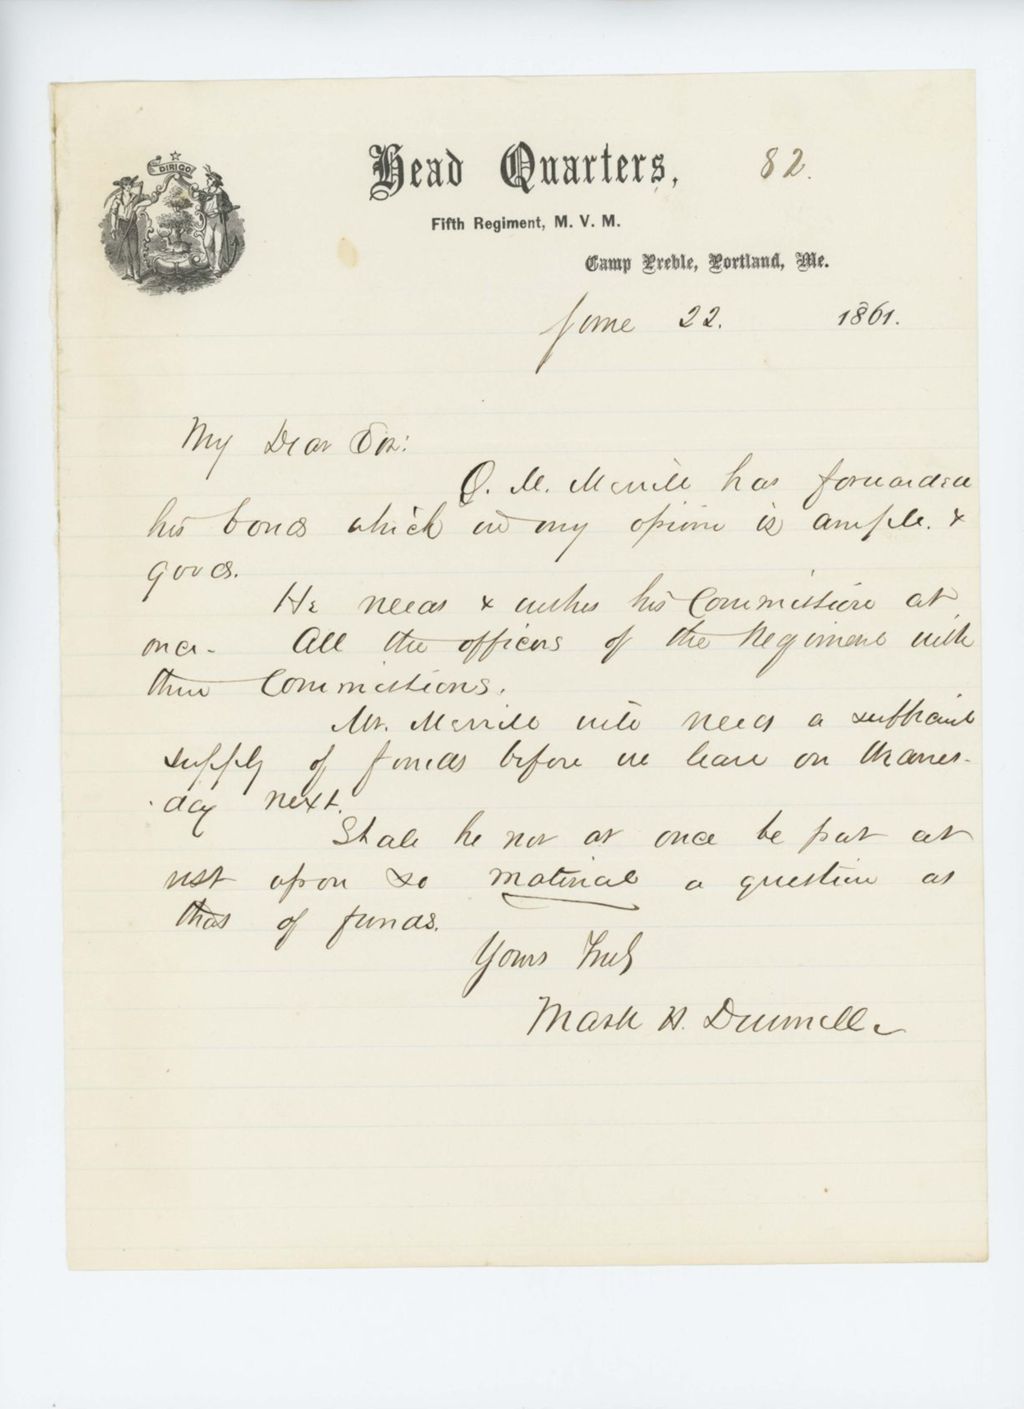 DIRIGO
Head Quarters, 82.
Fifth Regiment, M. V. M.
Camp Preble, Portland, Me.
June 22. 1861.
My Dear Sir:
Q. M. Merrill has forwarded
his bonds which in my opinion is ample &
good.
He needs & wishes his Commission at
once. All the officers of the Regiment wish
their Commissions.
Mr. Merrill will need a sufficient
supply of funds before we leave on Wednes-
day next.
Shall he not at once be put at
rest upon so material a question as
that of funds.
Yours Truly
Mark H. Dunnell